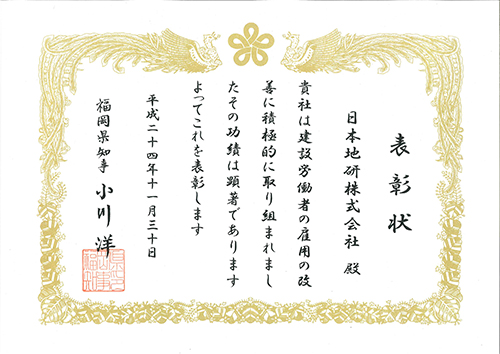 表彰状
日本地研株式会社 殿
貴社は建設労働者の雇用の改
善に積極的に取り組まれまし
たその功績は顕著であります
よってこれを表彰します
平成二十四年十一月三十日
福岡県知事 小川 洋